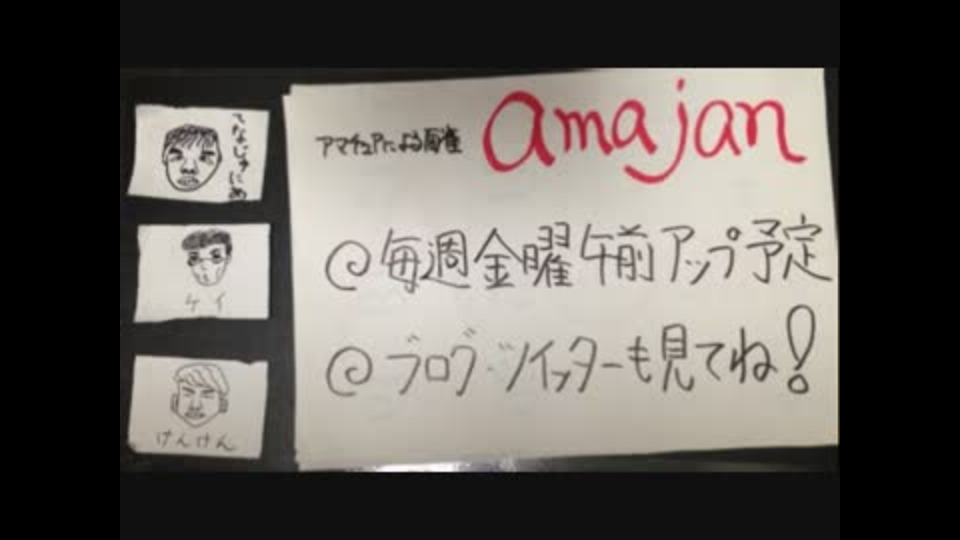 てなじゅにあ
ケイ
けんけん
アマチュアによる麻雀 amajan
@毎週金曜午前アップ予定
@ブログ・ツイッターも見てね!